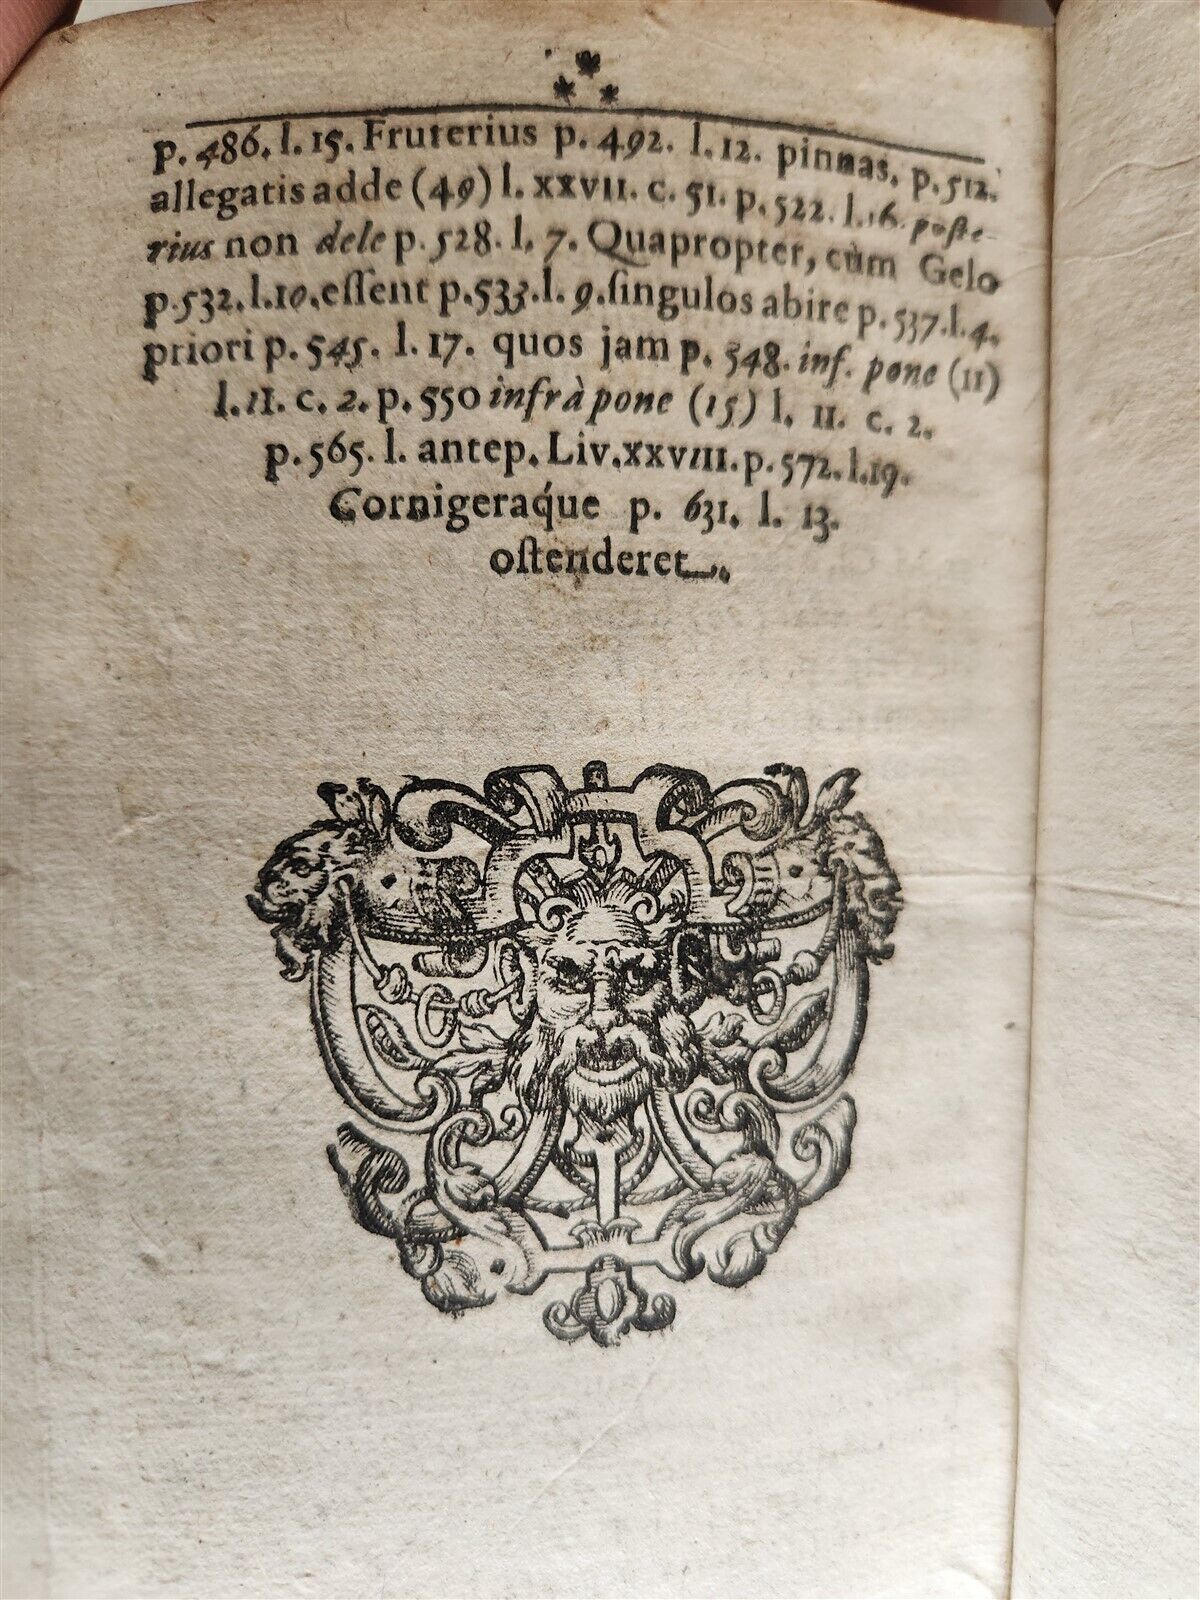 p. 486. l. 15. Fruterius p. 492. l. 12. pinnas, p. 512.
allegatis adde (49) l. xxvii. c. 51. p. 522. l. 16. poſte-
rius non dele p. 528. l. 7. Quapropter, cùm Gelo
p. 532. l. 10. eſſent p. 533. l. 9. ſingulos abire p. 537. l. 4.
priori p. 545. l. 17. quos jam p. 548. inf. pone (11)
l. II. c. 2. p. 550 infrà pone (15) l. II. c. 2.
p. 565. l. antep. Liv. xxviii. p. 572. l. 19.
Cornigeraq́ue p. 631. l. 13.
oſtenderet.